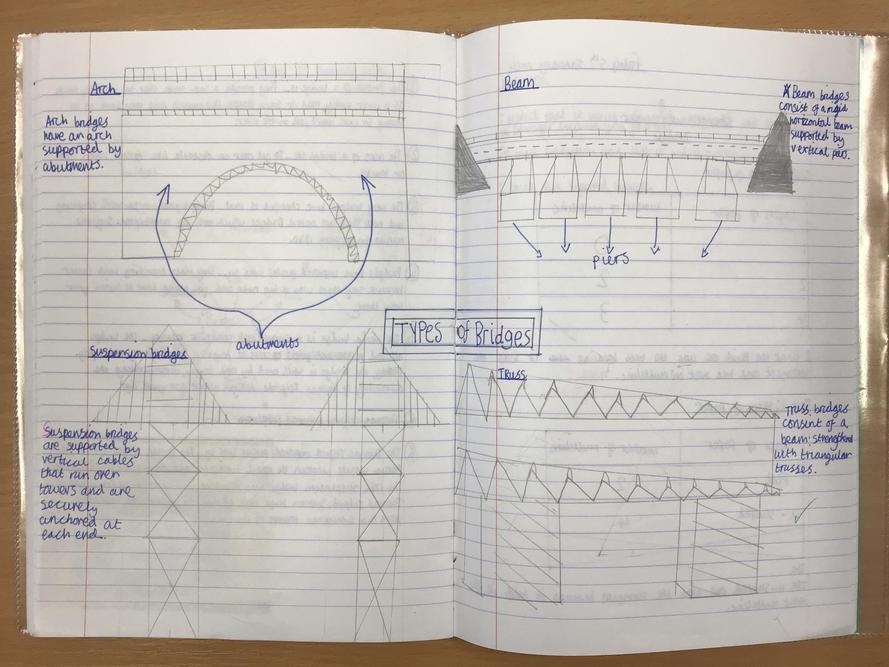 Arch
Arch bridges
have an arch
supported by
abutments.
abutments
Beam
* Beam bridges
consist of a rigid
horizontal beam
supported by
vertical piers.
piers
TYPES of Bridges
Suspension bridges
Suspension bridges
are supported by
vertical cables
that run over
towers and are
securely
anchored at
each end.
Truss
Truss bridges
consent of a
beam; strengthend
with triangular
trusses.